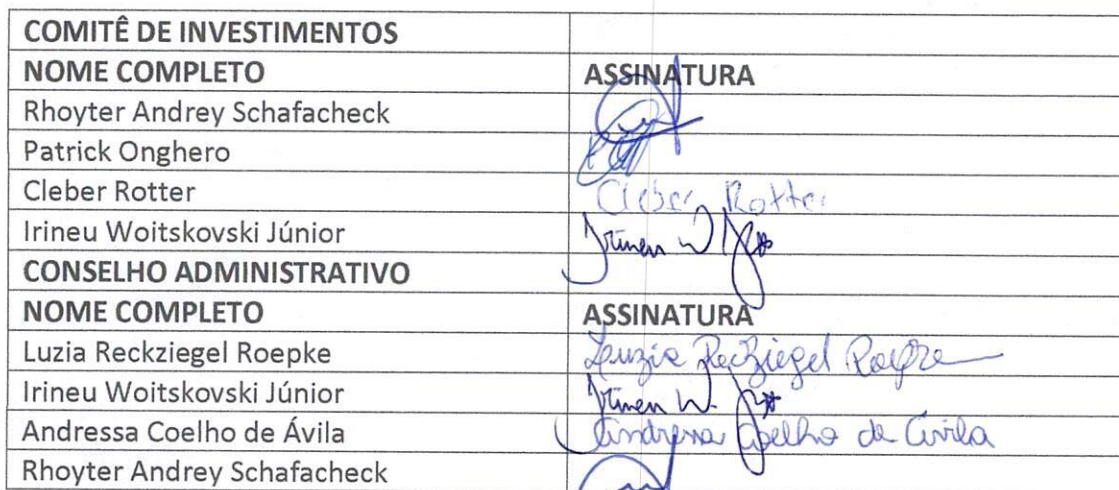 COMITÊ DE INVESTIMENTOS
NOME COMPLETO ASSINATURA
Rhoyter Andrey Schafacheck
Patrick Onghero
Cleber Rotter Cleber Rotter
Irineu Woitskovski Júnior Irineu W
CONSELHO ADMINISTRATIVO
NOME COMPLETO ASSINATURA
Luzia Reckziegel Roepke Luzia Reckziegel Roepke
Irineu Woitskovski Júnior Irineu W.
Andressa Coelho de Ávila Andressa Coelho de Ávila
Rhoyter Andrey Schafacheck